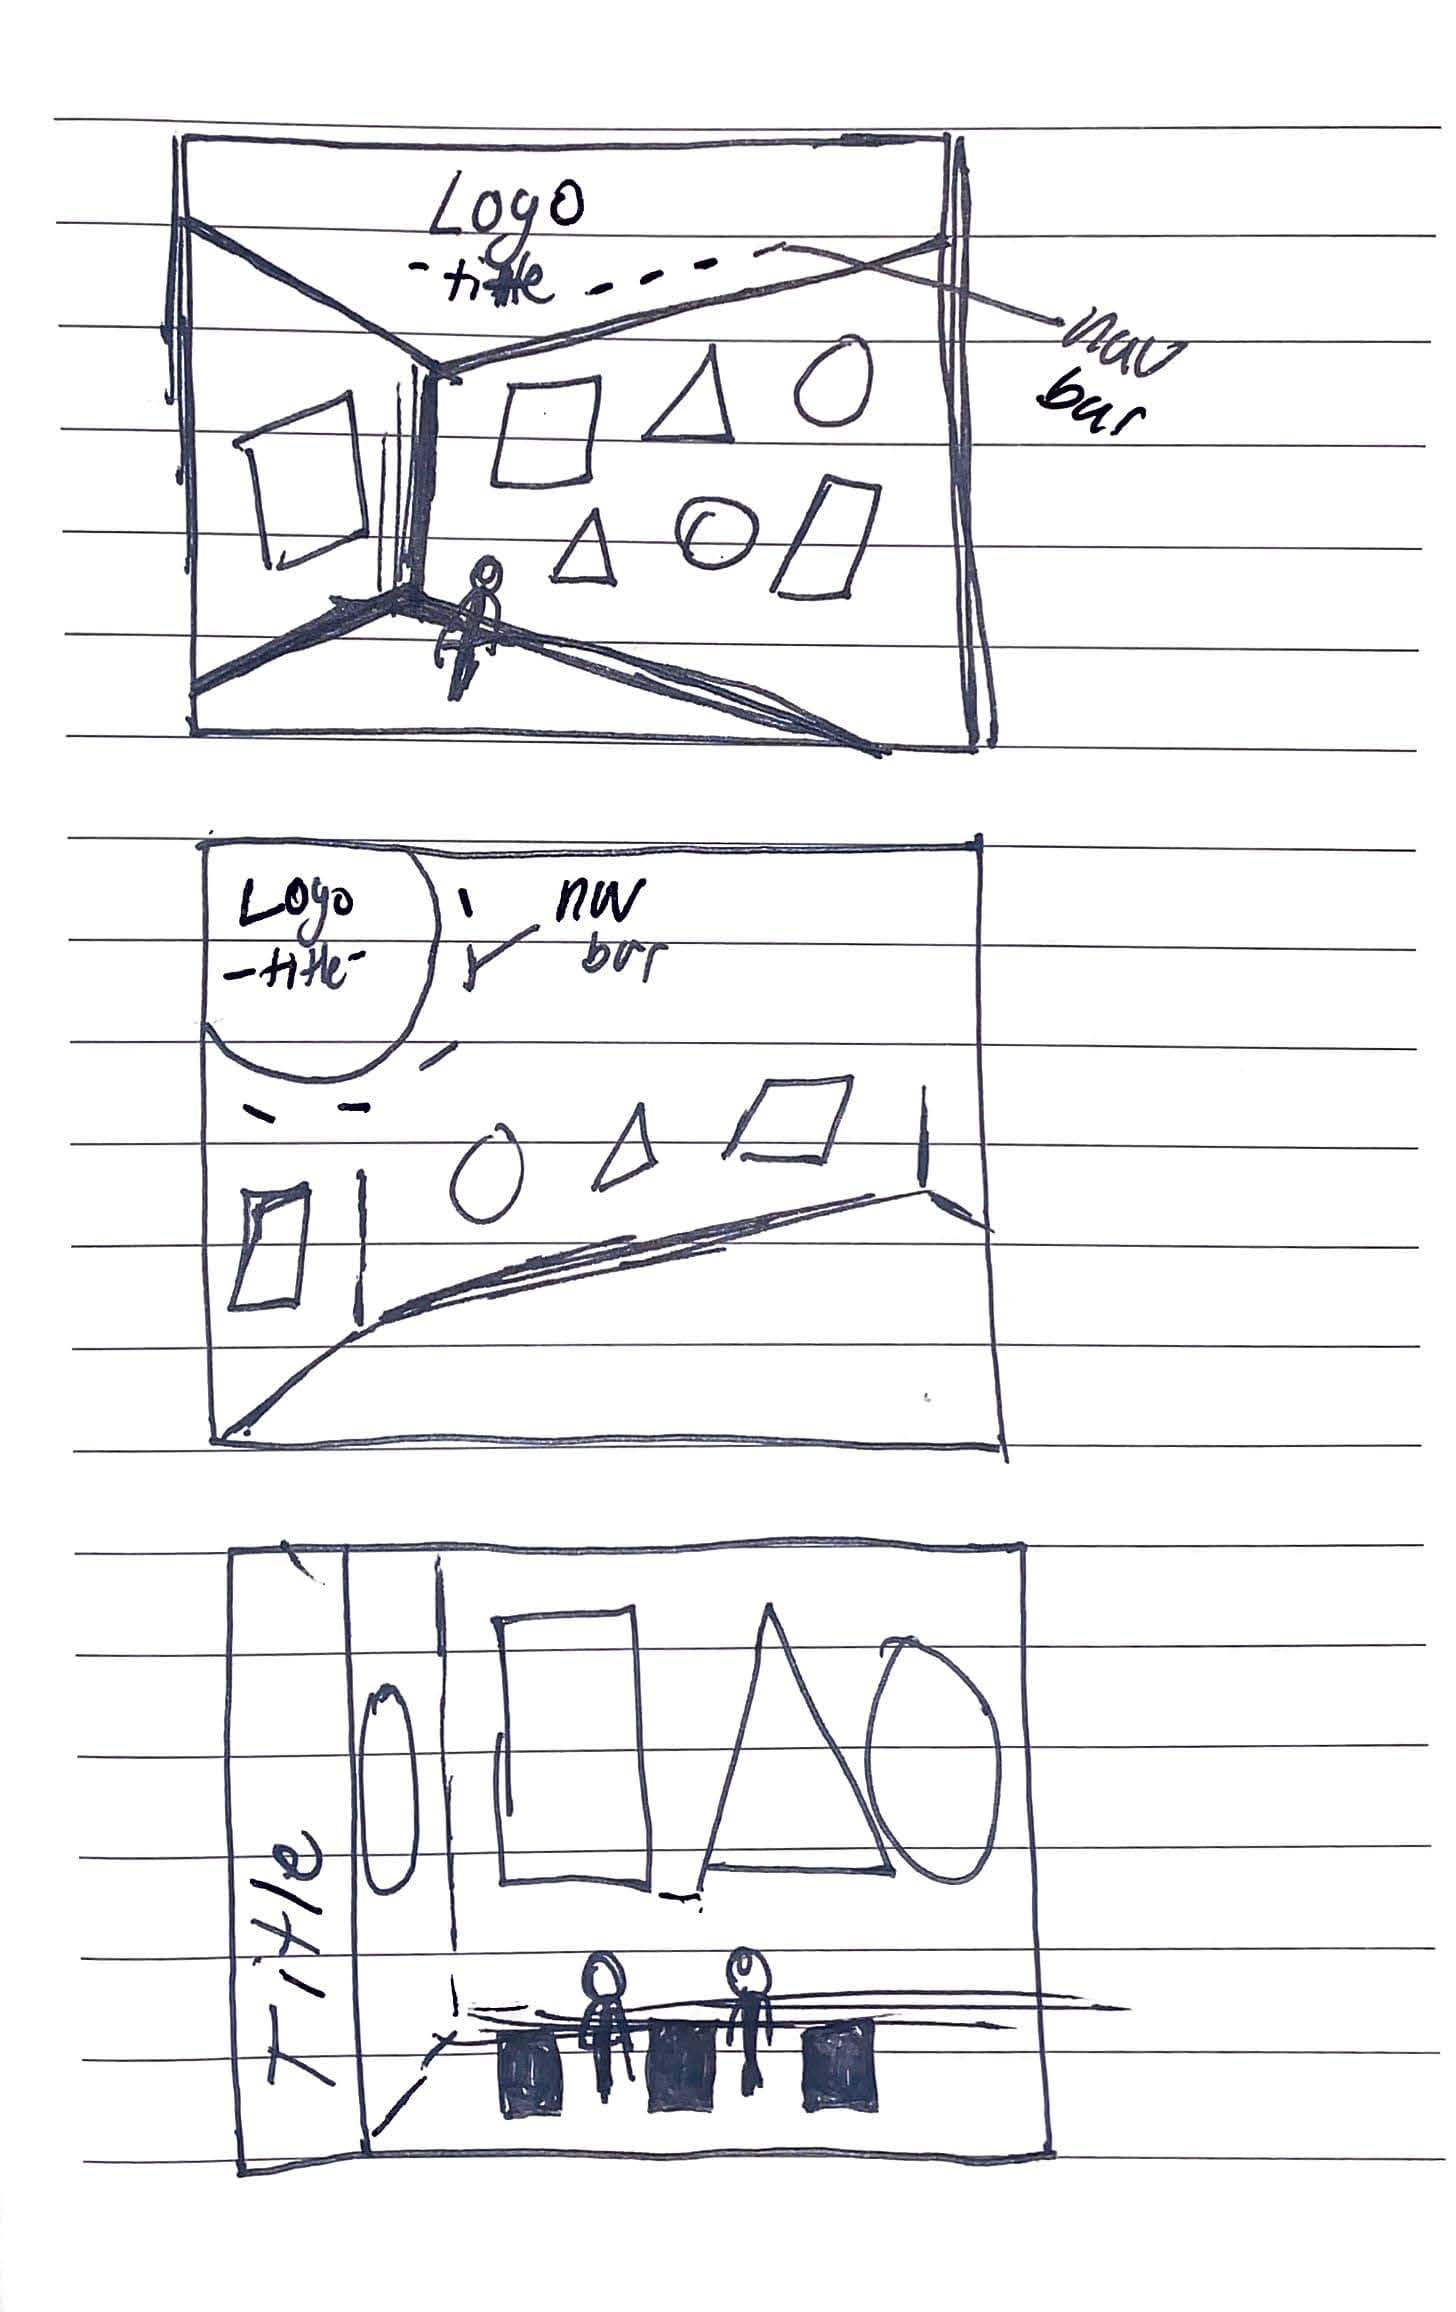 Logo
-title
nav
bar
Logo
-title-
nav
bar
Title